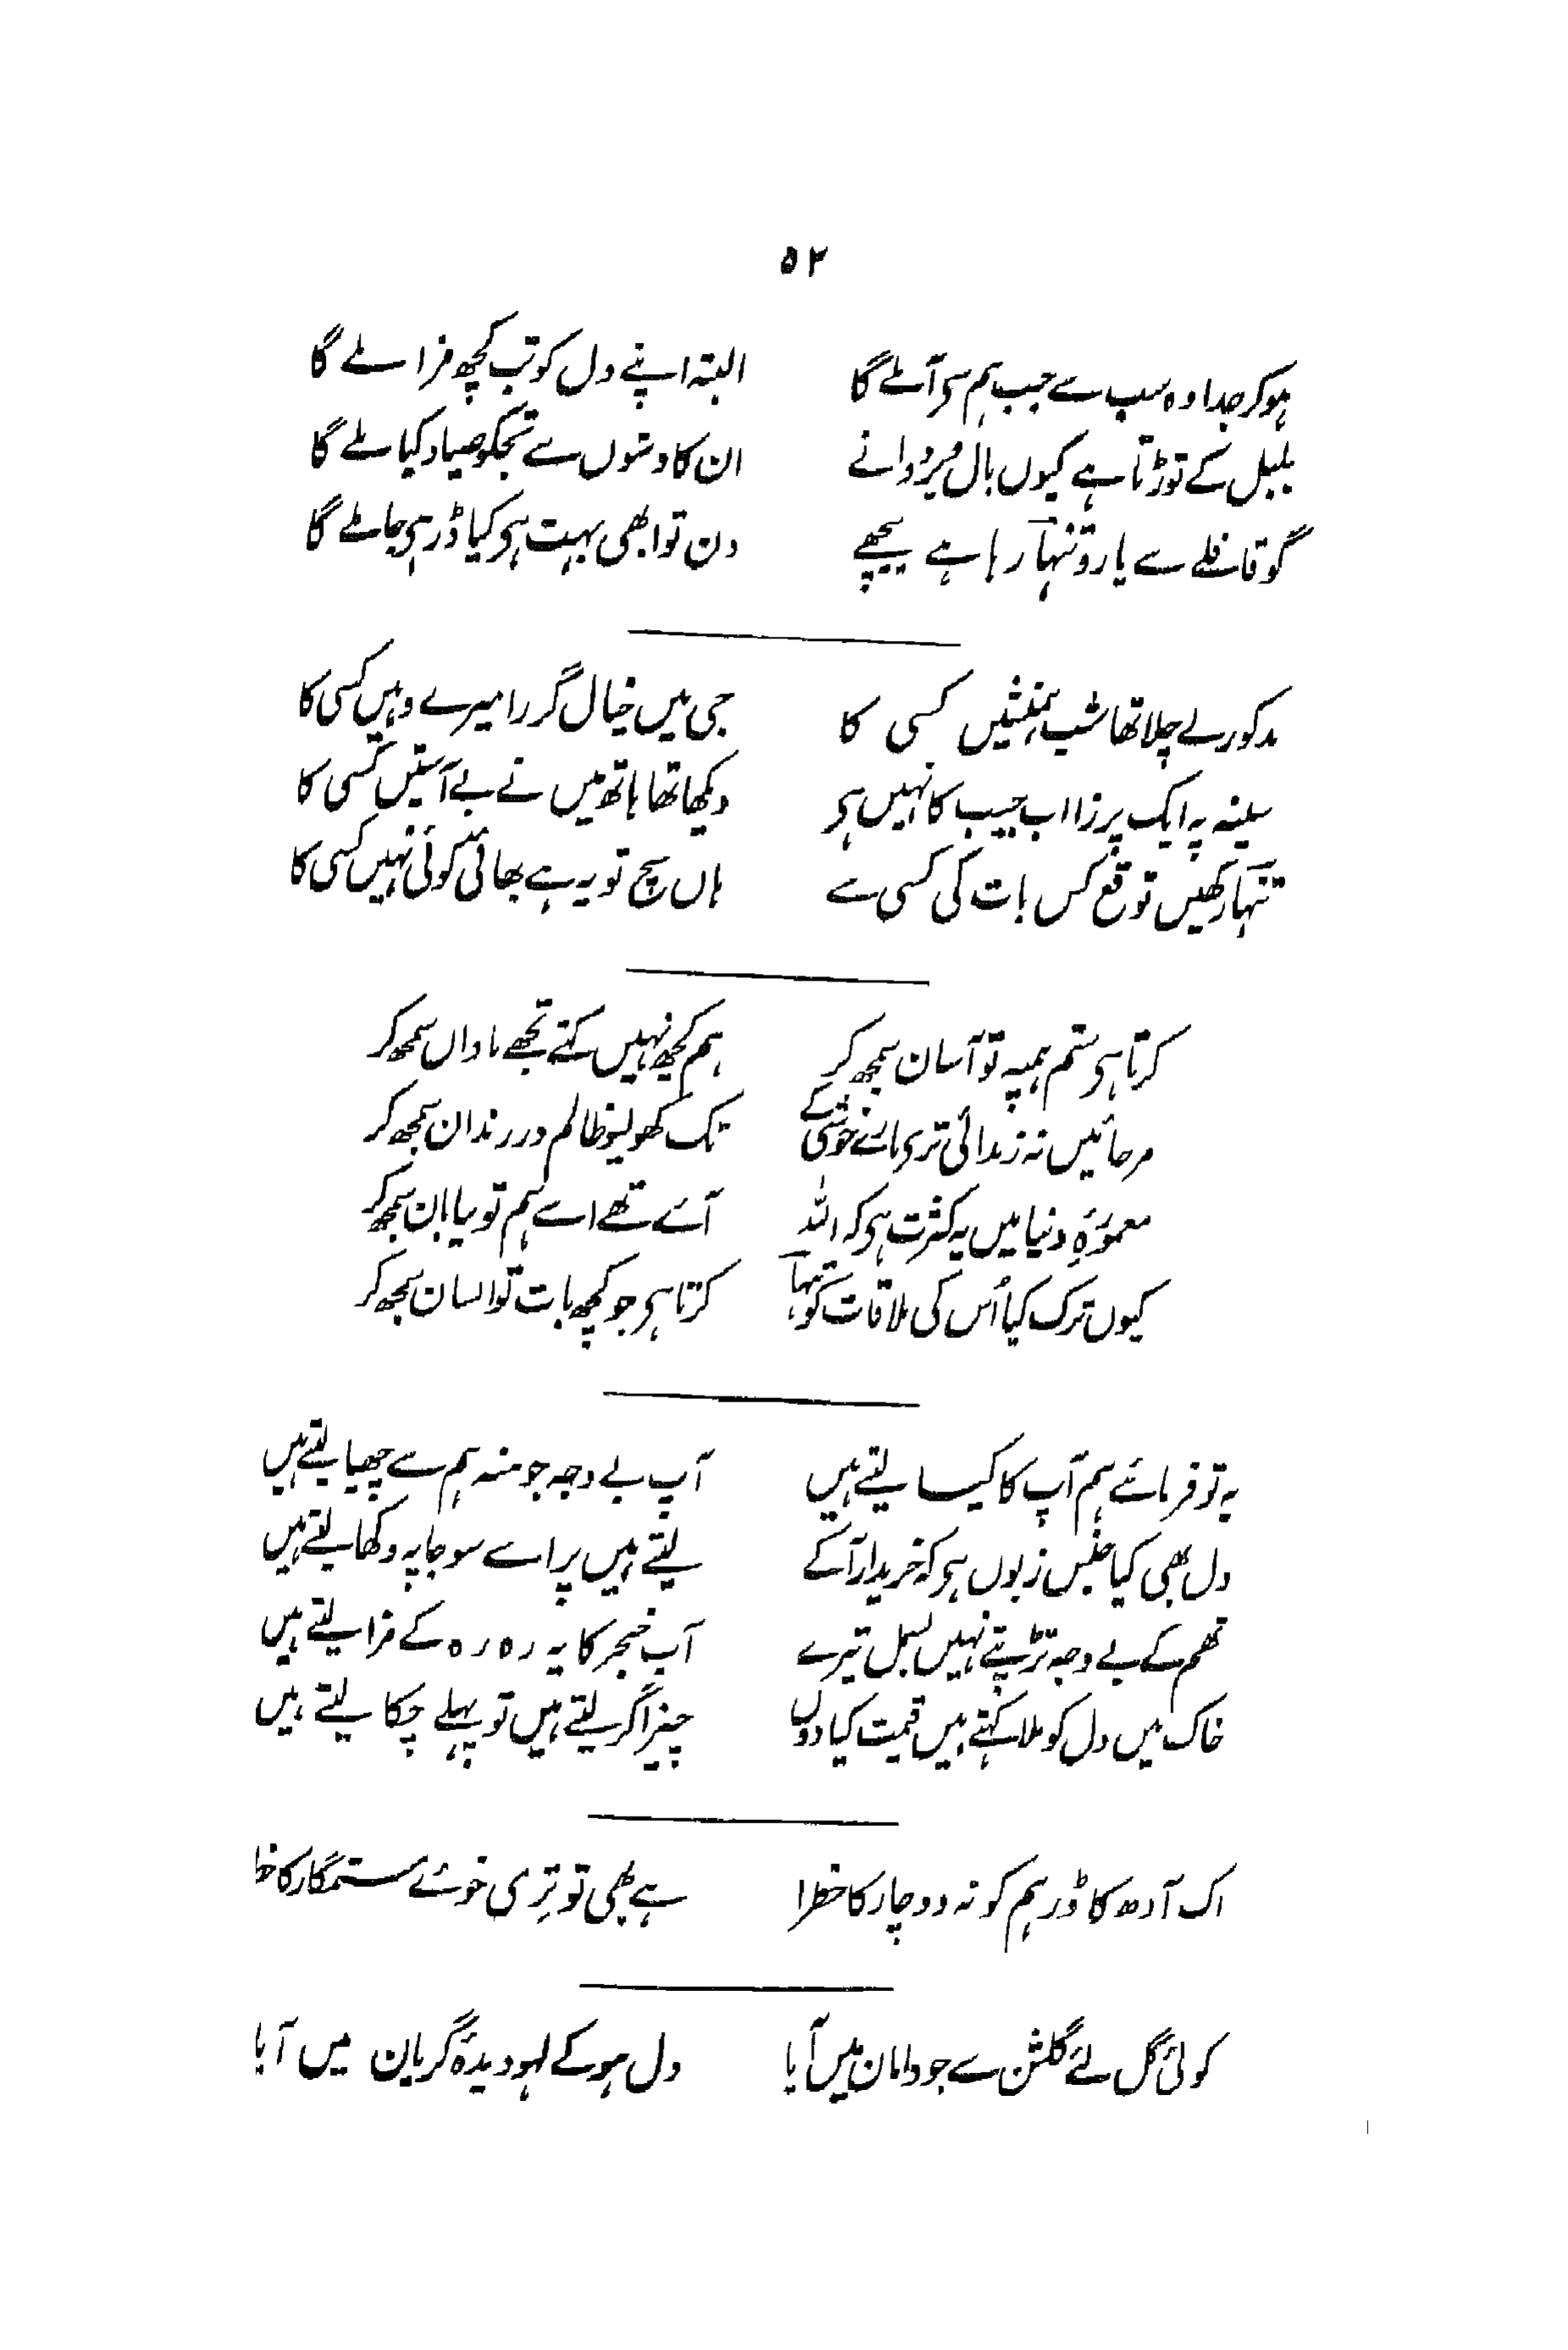 ۵۲
ہوکر جدا وہ سب سے جب ہم سی آملے گا
البتہ اپنے دل کو تب کچھ مزا ملے گا
بلبل کے توڑتا ہے کیوں بال پر دوانے
ان کاوشوں سے تجکو صیاد کیا ملے گا
گو قافلے سے یارو تنہا رہا ہے پیچھے
دن تو ابھی بہت ہی کیا ڈر ہی جا ملے گا
مذکور لے چلا تھا شب ہمنشیں کسی کا
جی میں خیال گزرا میرے وہیں کسی کا
سینہ پہ ایک پرزا اب جیب کا نہیں ہی
دیکھا تھا ہاتھ میں نے بے آستیں کسی کا
تنہا رکھیں توقع کس بات کی کسی سے
ہاں سچ تو یہ ہے بھائی کوئی نہیں کسی کا
کرتا ہی ستم ہمپہ تو آسان سمجھ کر
ہم کچھ نہیں کہتے تجھے ناداں سمجھ کر
مرجائیں نہ زندانی تری مارے خوشی کے
تک کھولیو ظالم در زندان سمجھ کر
معمورۂ دنیا میں یہ کثرت ہی کہ اللہ
آئے تھے اسے ہم تو بیابان سمجھ کر
کیوں ترک کیا اُس کی ملاقات کو تنہا
کرتا ہی جو کچھ بات تو انسان سمجھ کر
یہ تو فرمائے ہم آپ کا کیا لیتے ہیں
آپ بے وجہ جو منہ ہم سے چھپا لیتے ہیں
دل بھی کیا جنس زبوں ہی کہ خریدار آکے
لیتے ہیں پر اسے سو جا پہ دکھا لیتے ہیں
تھم کے بے وجہ تڑپتے نہیں بسمل تیرے
آب خنجر کا یہ رہ رہ کے مزا لیتے ہیں
خاک میں دل کو ملا کہتے ہیں قیمت کیا دوں
چیز اگر لیتے ہیں تو پہلے چکا لیتے ہیں
اک آدھ کا ڈر ہم کو نہ دو چار کا خطرا
ہے بھی تو تری خوئے ستمگار کا
کوئی گل لئے گلشن سے جو دامان میں آیا
دل ہو کے لہو دیدۂ گریان میں آیا